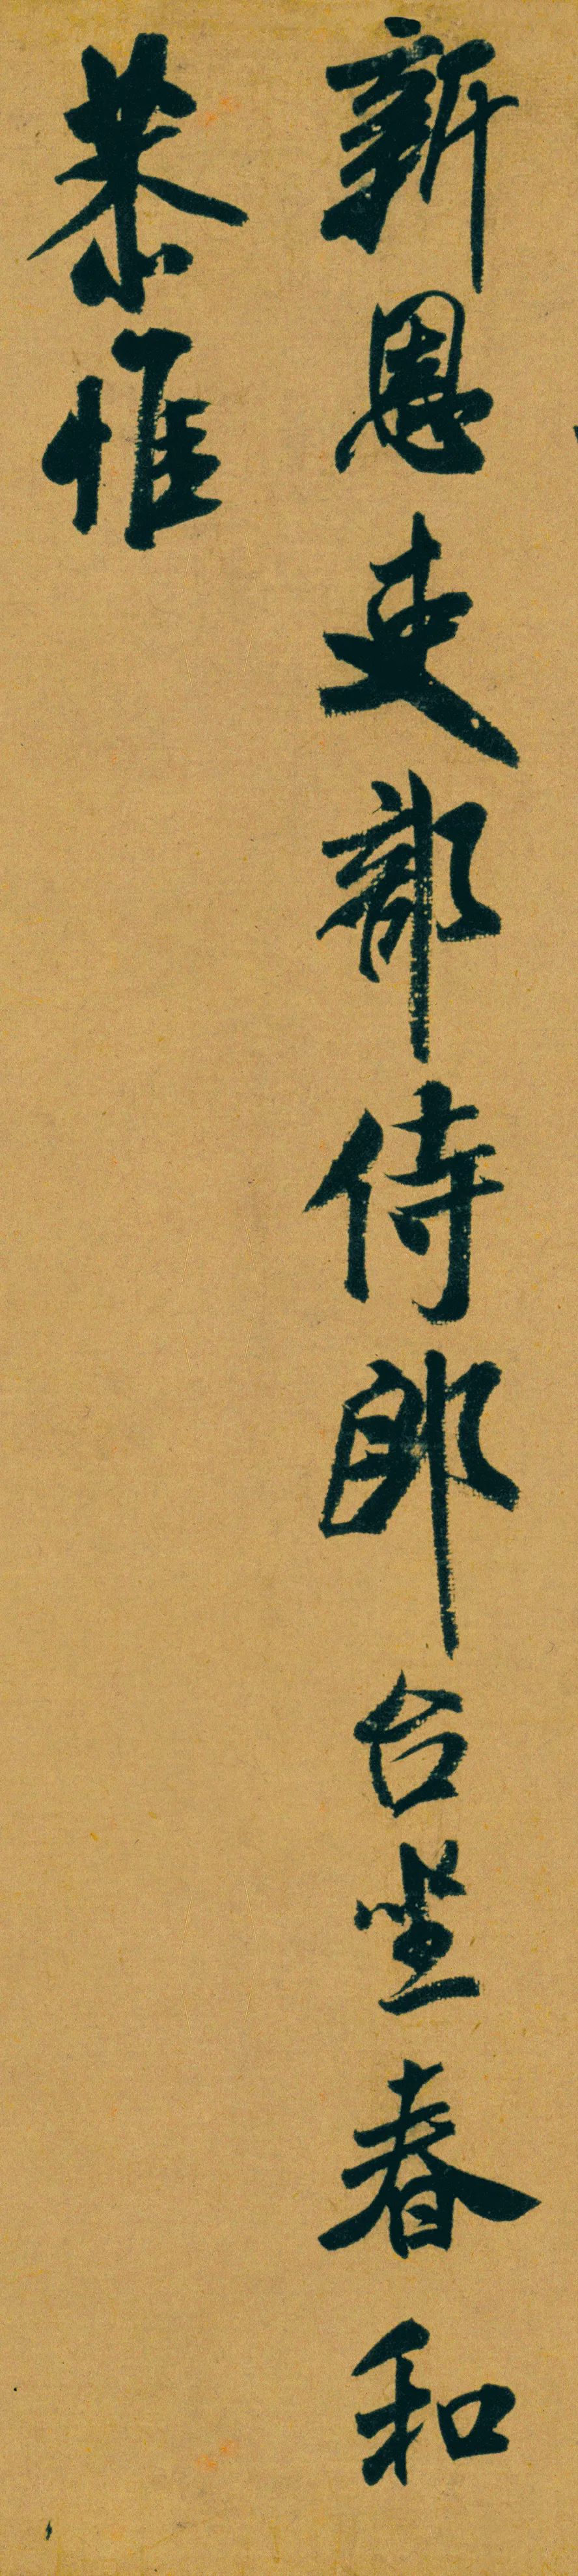 新恩吏部侍郎台坐春和
恭惟